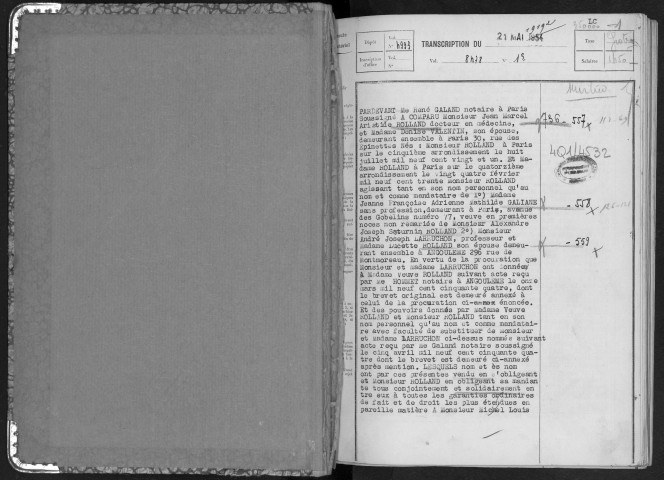 LC
TRANSCRIPTION DU 21 MAI 1954
Dépôt
Vol.
N°
Vol. 8478 n° 13
Taxe
Salaires
PARDEVANT Me René GALAND notaire à Paris
Soussigné A COMPARU Monsieur Jean Marcel
Aristide ROLLAND docteur en médecine,
et Madame Denise VALENTIN, son épouse,
demeurant ensemble à Paris 30, rue des
Epinettes Nés : Monsieur ROLLAND à Paris
sur le cinquième arrondissement le huit
juillet mil neuf cent vingt et un. Et Ma-
dame ROLLAND à Paris sur le quatorzième
arrondissement le vingt quatre février
mil neuf cent trente Monsieur ROLLAND
agissant tant en son nom personnel qu'au
nom et comme mandataire de 1°) Madame
Jeanne Françoise Adrienne Mathilde GALIANE
sans profession, demeurant à Paris, avenue
des Gobelins numéro 77, veuve en premières
noces non remariée de Monsieur Alexandre
Joseph Saturnin ROLLAND 2°) Monsieur
André Joseph LARRUCHON, professeur et
Madame Lucette ROLLAND son épouse demeu-
rant ensemble à ANGOULEME 296 rue de
Montmoreau. En vertu de la procuration que
Monsieur et madame LARRUCHON ont donnée
à Madame veuve ROLLAND suivant acte reçu
par Me HOMMET notaire à ANGOULEME le onze
mars mil neuf cent cinquante quatre, dont
le brevet original est demeuré annexé à
celui de la procuration ci-annex énoncée.
Et des pouvoirs donnés par Madame Veuve
ROLLAND et Monsieur ROLLAND tant en son
nom personnel qu'au nom et comme mandatai-
re avec faculté de substituer de Monsieur
et Madame LARRUCHON ci-dessus nommée suivant
acte reçu par Me Galand notaire soussigné
le cinq avril mil neuf cent cinquante qua-
tre dont le brevet est demeuré ci-annexé
après mention. LESQUELS nom et ès nom
ont par ces présentes vendu en s'obligeant
et Monsieur ROLLAND en obligeant sa mandan
te tous conjointement et solidairement en
tre eux à toutes les garanties ordinaires
de fait et de droit les plus étendues en
pareille matière A Monsieur Michel Louis
736 - 557
4Q1/4532
- 558
- 559